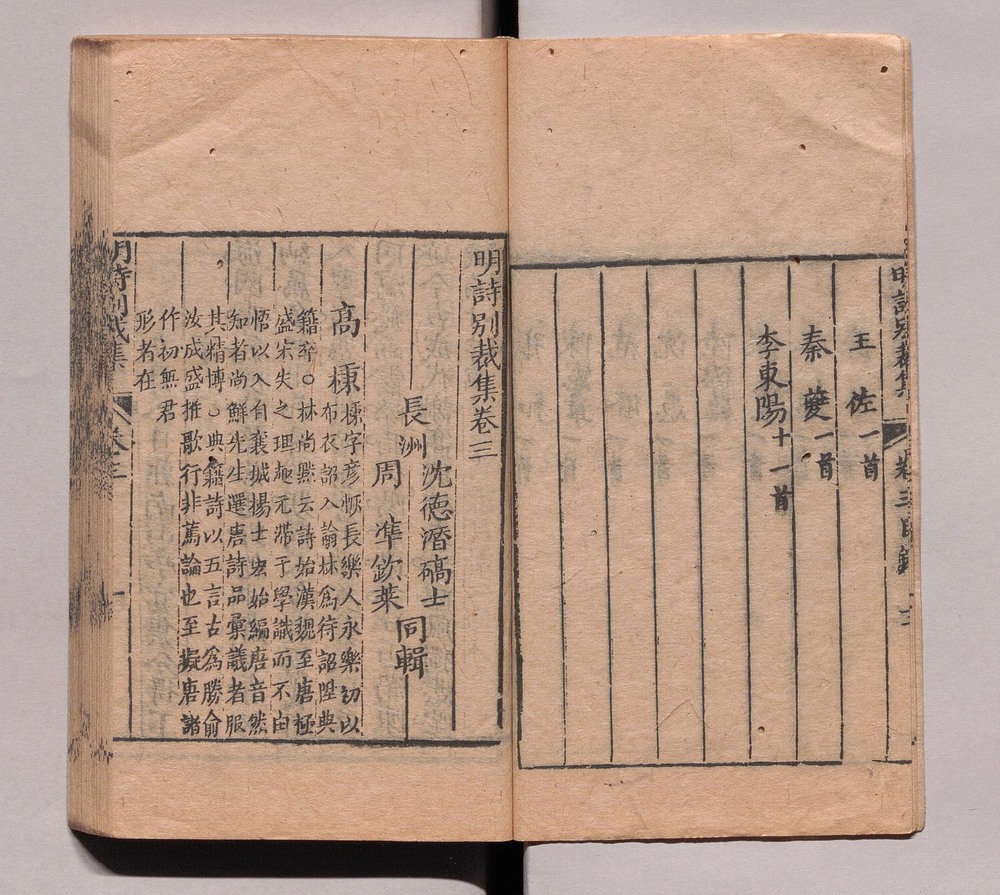 明詩別裁集 卷三目錄 二
王佐一首
秦夔一首
李東陽十一首
明詩別裁集卷三
長洲
沈徳潛碻士
周準欽萊
同輯
高棅
棅字彥恢長樂人永樂初以
布衣詔入翰林為待詔陞典
籍卒○林尚默云詩始漢魏至唐極
盛宋失之理趣元滯于學識而不由
悟以入自襄城揚士宏始編唐音然
知者尚鮮先生選唐詩品彙議者服
其精博○典籍詩以五言古為勝俞
汝成盛推歌行非篤論也至擬唐諸
作初無君
形者在
明詩別裁集 卷三 一